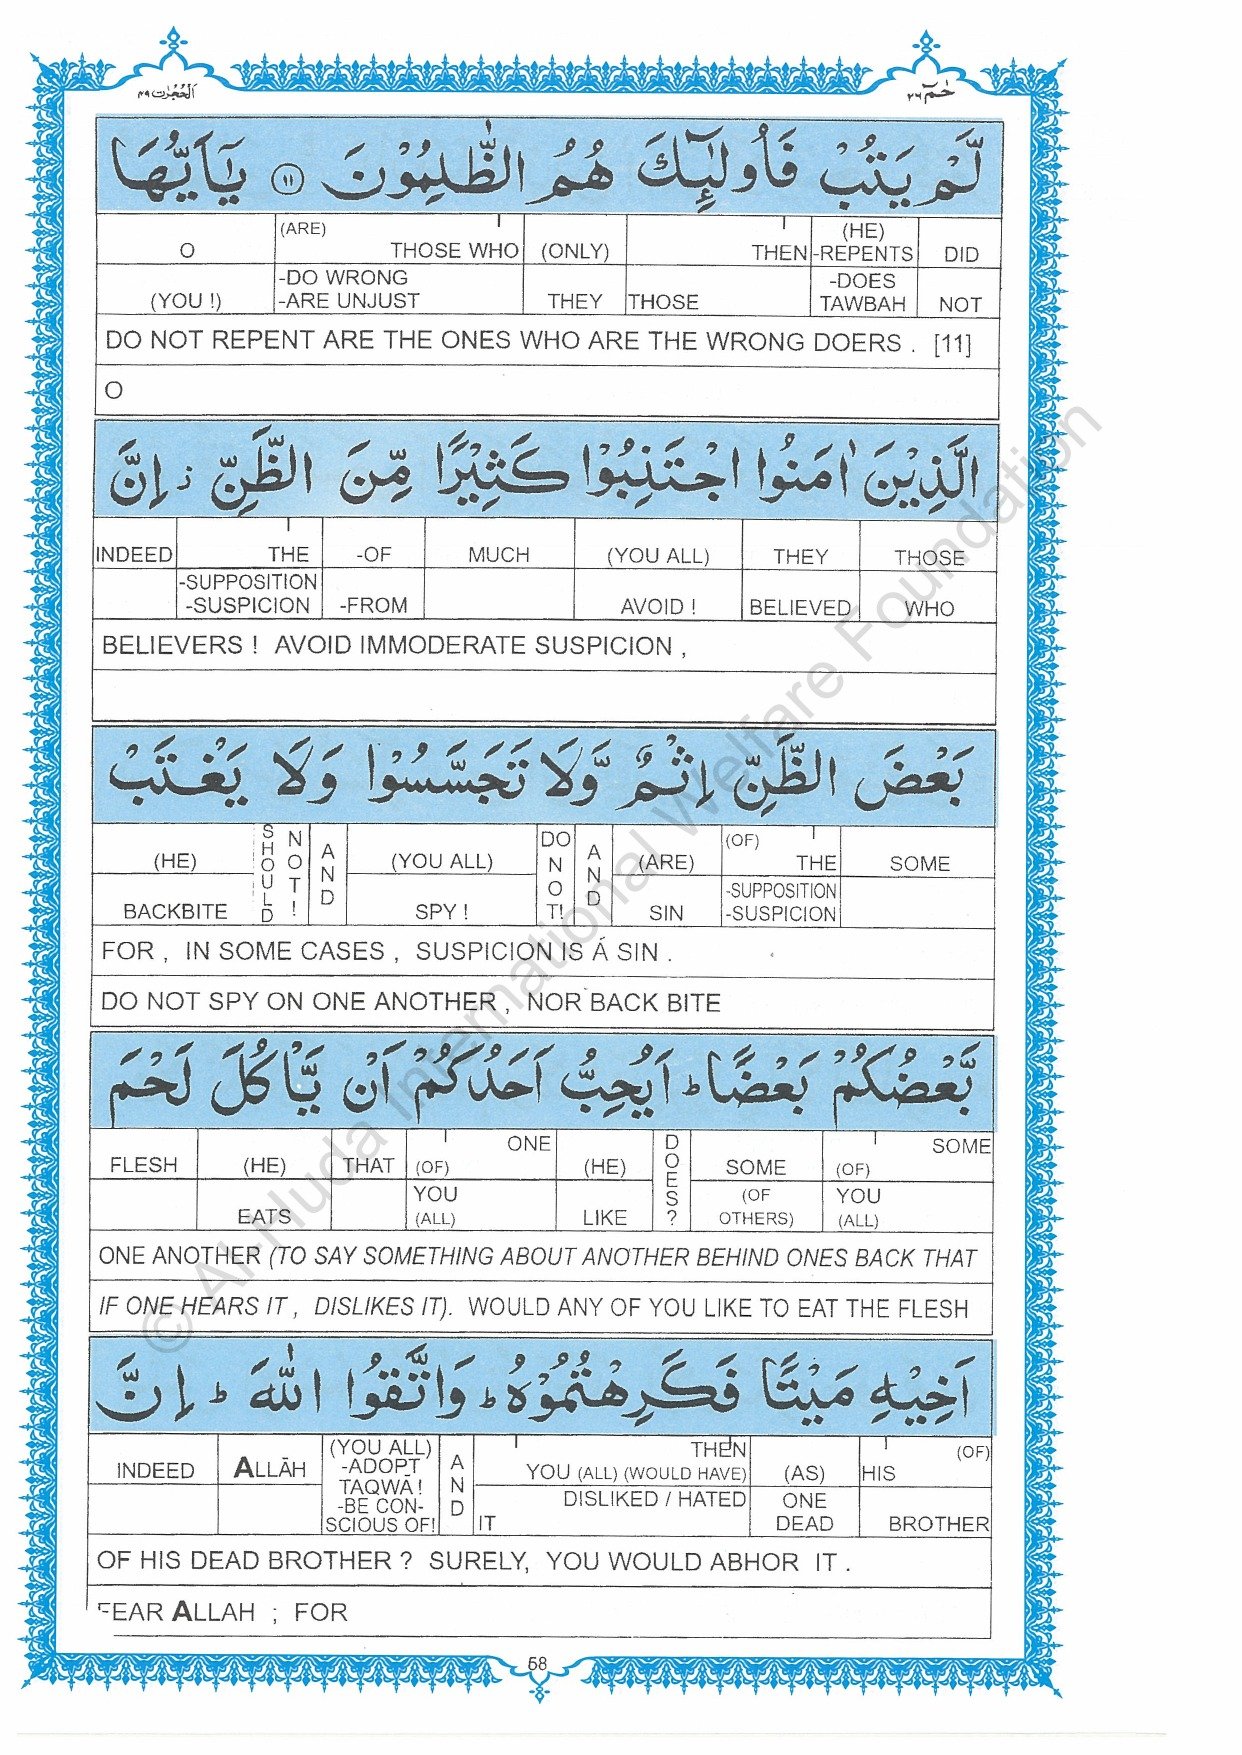 اَلْحُجُرٰت ٤٩
حٰمٓ ٢٦
لَّمْ يَتُبْ فَاُولٰٓئِكَ هُمُ الظّٰلِمُوْنَ ١١ يٰۤاَيُّهَا
O (ARE) THOSE WHO (ONLY) THEN (HE) -REPENTS DID
(YOU !) -DO WRONG -ARE UNJUST THEY THOSE -DOES TAWBAH NOT
DO NOT REPENT ARE THE ONES WHO ARE THE WRONG DOERS . [11]
O
الَّذِيْنَ اٰمَنُوا اجْتَنِبُوْا كَثِيْرًا مِّنَ الظَّنِّ ز اِنَّ
INDEED THE -OF MUCH (YOU ALL) THEY THOSE
-SUPPOSITION -SUSPICION -FROM AVOID ! BELIEVED WHO
BELIEVERS ! AVOID IMMODERATE SUSPICION ,
بَعْضَ الظَّنِّ اِثْمٌ وَّلَا تَجَسَّسُوْا وَلَا يَغْتَبْ
(HE) SHOULD NOT! AND (YOU ALL) DO NOT! AND (ARE) (OF) THE SOME
BACKBITE SPY ! SIN -SUPPOSITION -SUSPICION
FOR , IN SOME CASES , SUSPICION IS Á SIN .
DO NOT SPY ON ONE ANOTHER , NOR BACK BITE
بَّعْضُكُمْ بَعْضًا ط اَيُحِبُّ اَحَدُكُمْ اَنْ يَّاْكُلَ لَحْمَ
FLESH (HE) THAT ONE (OF) (HE) DOES? SOME SOME (OF)
EATS YOU (ALL) LIKE (OF OTHERS) YOU (ALL)
ONE ANOTHER (TO SAY SOMETHING ABOUT ANOTHER BEHIND ONES BACK THAT
IF ONE HEARS IT , DISLIKES IT). WOULD ANY OF YOU LIKE TO EAT THE FLESH
اَخِيْهِ مَيْتًا فَكَرِهْتُمُوْهُ ط وَاتَّقُوا اللّٰهَ ط اِنَّ
INDEED ALLĀH (YOU ALL) -ADOPT TAQWĀ ! -BE CON- SCIOUS OF! AND THEN YOU (ALL) (WOULD HAVE) (AS) (OF) HIS
IT DISLIKED / HATED ONE DEAD BROTHER
OF HIS DEAD BROTHER ? SURELY, YOU WOULD ABHOR IT .
FEAR ALLAH ; FOR
58
© Al-Huda International Welfare Foundation